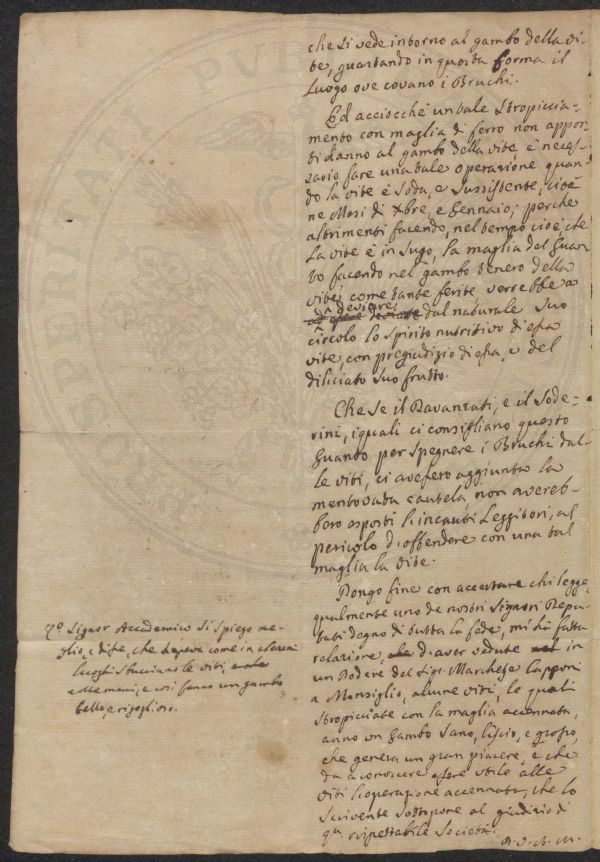 che si vede intorno al gambo della vi-
te, guastando in questa forma il
Luogo ove covano i Bruchi.
Ed acciocchè un tale Stropiccia-
mento con maglia di ferro non appor-
ti danno al gambo della vite è neces-
sario fare una tale operazione quan-
do la vite è Soda, e Sussistente, cioè
ne Mesi di Xbre, e Gennaio; perche
altrimenti facendo, nel tempo cioè, che
La vite è in Sugo, la maglia del Guan-
to, facendo nel gambo tenero della
vite, come tante ferite verrebbe a
deviare dal naturale Suo
circolo lo Spirito nutritivo di essa
vite, con pregiudizio di essa, e del
diliciato Suo frutto.
Che se il Davanzati, e il Sode-
rini, i quali ci consigliano questo
Guanto per Spegnere i Bruchi dal-
le viti, ci avessero aggiunta la
mentovata cautela, non avereb-
bero esposti l'incauti Leggitori, al
pericolo d'offendere con una tal
maglia la vite.
Pongo fine con accertare chi legge,
qualmente uno de nostri Signori Depu-
tati degno di tutta la fede, mi hà fatta
relazione, di aver vedute in
un Podere del Sigr. Marchese Capponi
a Monsiglio, alcune viti, le quali
Stropicciate con la maglia accennata,
anno un Gambo Sano, liscio, e grosso,
che genera un gran piacere, e che
da a conoscere essere utile alle
viti l'operazione accennata, che lo
Scrivente Sottopone al giudizio di
qta. rispettabile Società.
Signor Accademico Si Spiegò me-
glio, e disse, che Sapeva come in alcuni
luoghi Stucciano le viti,
colle mani, e così fanno un gambo
bello, e rigoglioso.